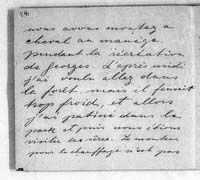 nous avons montés à
cheval au manège
pendant la récréation
de Georges. L'après midi
j'ai voulu aller dans
la forêt. mais il faisait
trop froid, et alors
j'ai patiné dans le
park et puis nous étions
visiter les serres. Le monsieur
pour le chauffage n'est pas